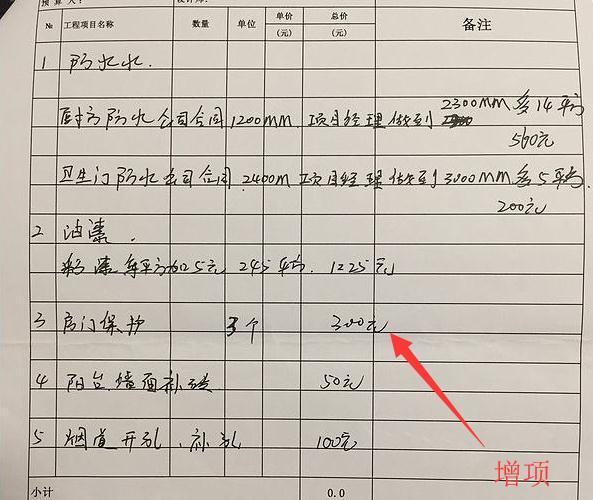 预算人:
设计师:
№ 工程项目名称 数量 单位 单价(元) 总价(元) 备注
1 防水.
厨房防水公司合同1200mm.项目经理做到2300mm多14平方
560元
卫生门防水公司合同.2400m项目经理做到3000mm多5平方.
200元
2 油漆.
彩漆每平方加25元 245平方. 1225元
3 房门保护 3个 300元
4 阳台.墙面补 50元
5 烟道开孔.补孔 100元
增项
小计 0.0